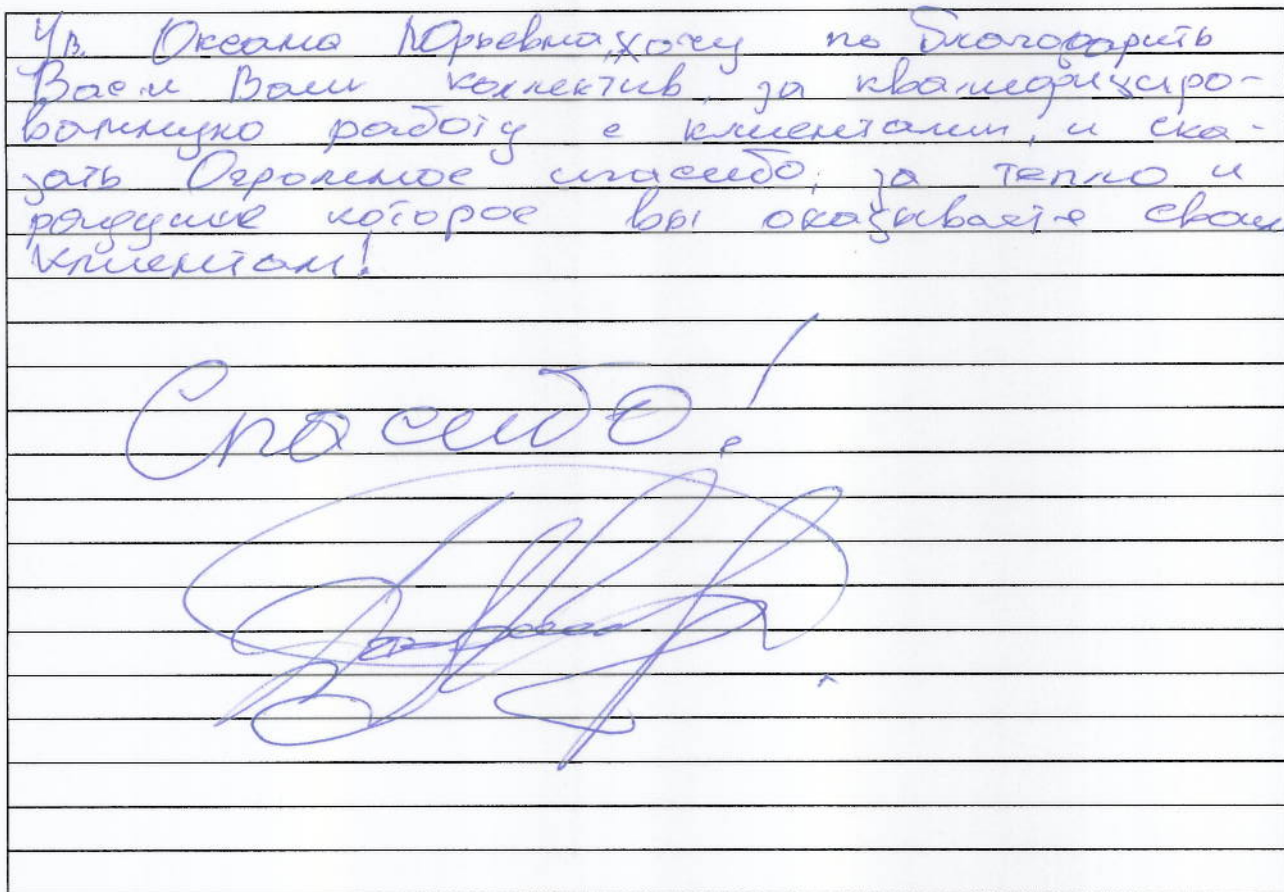 Ув. Оксана Юрьевна, хочу по благодарить
Вас и Ваш коллектив, за квалифициро-
ванную работу с клиентами, и ска-
зать Огромное спасибо, за тепло и
радушие которое вы оказываете своим
клиентам!
Спасибо!